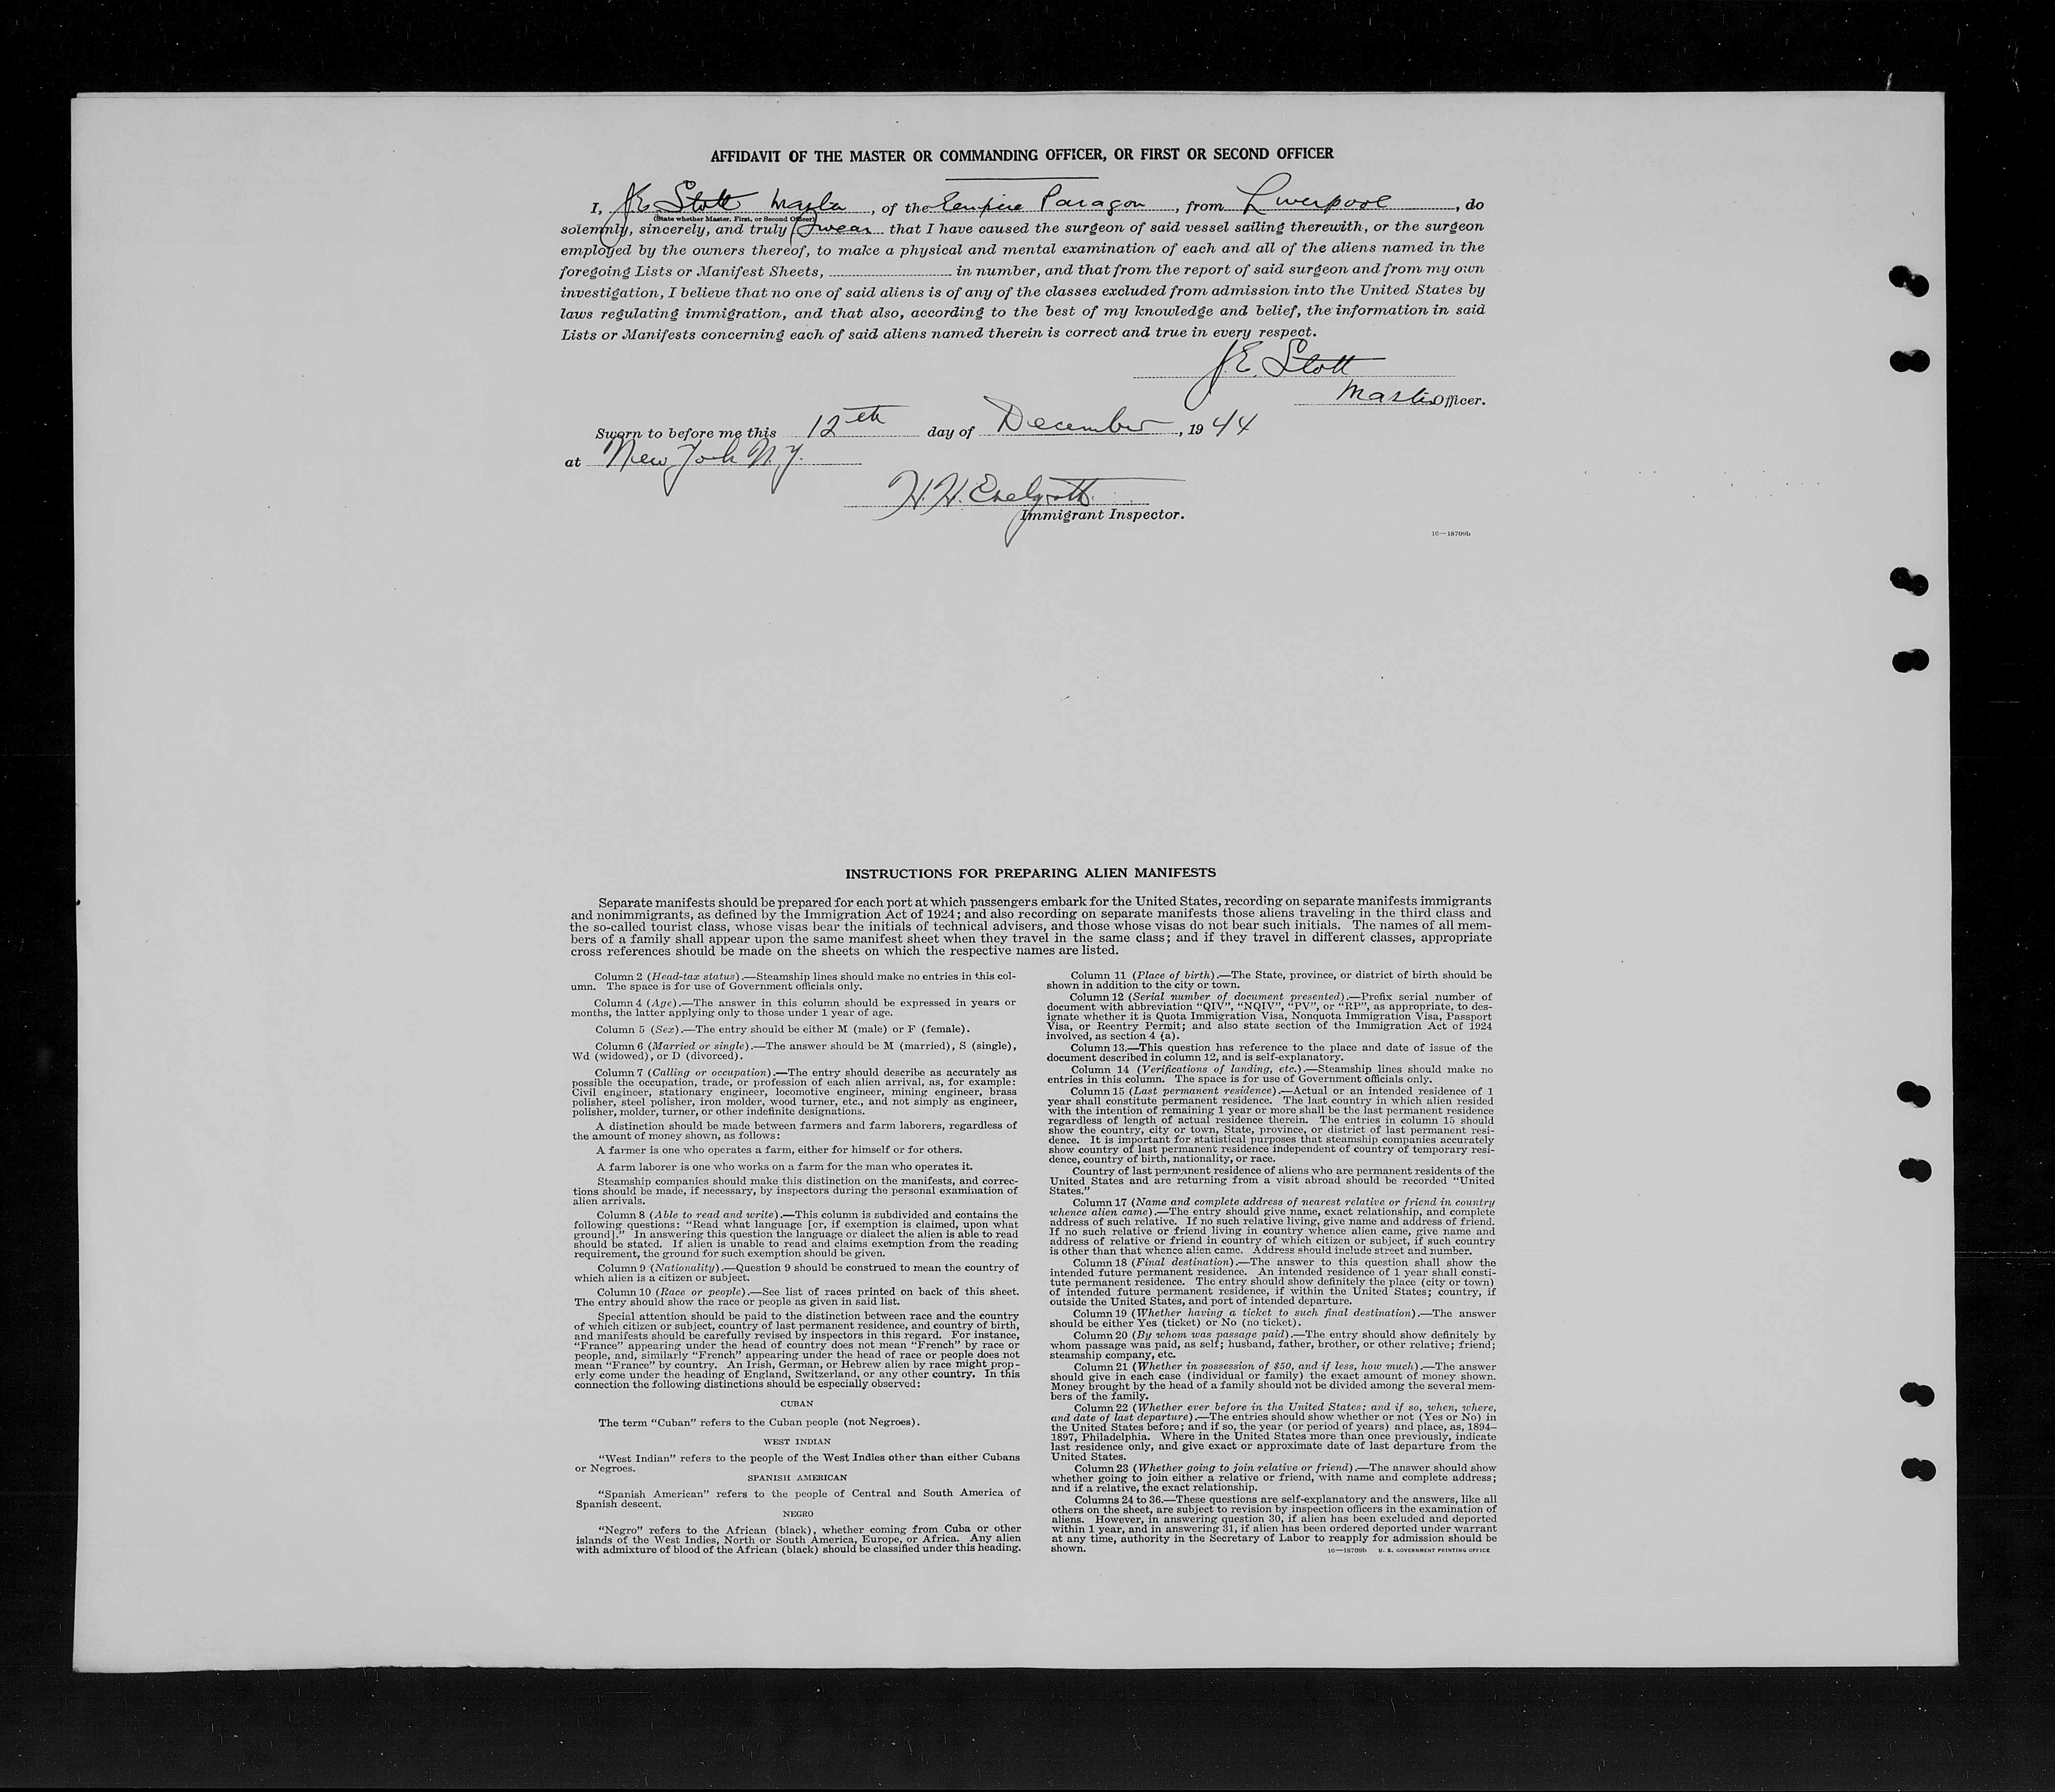 AFFIDAVIT OF THE MASTER OR COMMANDING OFFICER, OR FIRST OR SECOND OFFICER
I, J.E. Stott Master, of the Empire Paragon, from Liverpool, do
(State whether Master, First, or Second Officer)
solemnly, sincerely, and truly swear that I have caused the surgeon of said vessel sailing therewith, or the surgeon
employed by the owners thereof, to make a physical and mental examination of each and all of the aliens named in the
foregoing Lists or Manifest Sheets, in number, and that from the report of said surgeon and from my own
investigation, I believe that no one of said aliens is of any of the classes excluded from admission into the United States by
laws regulating immigration, and that also, according to the best of my knowledge and belief, the information in said
Lists or Manifests concerning each of said aliens named therein is correct and true in every respect.
J.E. Stott
Master Officer.
Sworn to before me this 12th day of December, 1944
at New York N.Y.
H.H.
Immigrant Inspector.
16—18709b
INSTRUCTIONS FOR PREPARING ALIEN MANIFESTS
Separate manifests should be prepared for each port at which passengers embark for the United States, recording on separate manifests immigrants
and nonimmigrants, as defined by the Immigration Act of 1924; and also recording on separate manifests those aliens traveling in the third class and
the so-called tourist class, whose visas bear the initials of technical advisers, and those whose visas do not bear such initials. The names of all mem-
bers of a family shall appear upon the same manifest sheet when they travel in the same class; and if they travel in different classes, appropriate
cross references should be made on the sheets on which the respective names are listed.
Column 2 (Head-tax status).—Steamship lines should make no entries in this col-
umn. The space is for use of Government officials only.
Column 4 (Age).—The answer in this column should be expressed in years or
months, the latter applying only to those under 1 year of age.
Column 5 (Sex).—The entry should be either M (male) or F (female).
Column 6 (Married or single).—The answer should be M (married), S (single),
Wd (widowed), or D (divorced).
Column 7 (Calling or occupation).—The entry should describe as accurately as
possible the occupation, trade, or profession of each alien arrival, as, for example:
Civil engineer, stationary engineer, locomotive engineer, mining engineer, brass
polisher, steel polisher, iron molder, wood turner, etc., and not simply as engineer,
polisher, molder, turner, or other indefinite designations.
A distinction should be made between farmers and farm laborers, regardless of
the amount of money shown, as follows:
A farmer is one who operates a farm, either for himself or for others.
A farm laborer is one who works on a farm for the man who operates it.
Steamship companies should make this distinction on the manifests, and correc-
tions should be made, if necessary, by inspectors during the personal examination of
alien arrivals.
Column 8 (Able to read and write).—This column is subdivided and contains the
following questions: "Read what language [or, if exemption is claimed, upon what
ground]." In answering this question the language or dialect the alien is able to read
should be stated. If alien is unable to read and claims exemption from the reading
requirement, the ground for such exemption should be given.
Column 9 (Nationality).—Question 9 should be construed to mean the country of
which alien is a citizen or subject.
Column 10 (Race or people).—See list of races printed on back of this sheet.
The entry should show the race or people as given in said list.
Special attention should be paid to the distinction between race and the country
of which citizen or subject, country of last permanent residence, and country of birth,
and manifests should be carefully revised by inspectors in this regard. For instance,
"France" appearing under the head of country does not mean "French" by race or
people, and, similarly "French" appearing under the head of race or people does not
mean "France" by country. An Irish, German, or Hebrew alien by race might prop-
erly come under the heading of England, Switzerland, or any other country. In this
connection the following distinctions should be especially observed:
CUBAN
The term "Cuban" refers to the Cuban people (not Negroes).
WEST INDIAN
"West Indian" refers to the people of the West Indies other than either Cubans
or Negroes.
SPANISH AMERICAN
"Spanish American" refers to the people of Central and South America of
Spanish descent.
NEGRO
"Negro" refers to the African (black), whether coming from Cuba or other
islands of the West Indies, North or South America, Europe, or Africa. Any alien
with admixture of blood of the African (black) should be classified under this heading.
Column 11 (Place of birth).—The State, province, or district of birth should be
shown in addition to the city or town.
Column 12 (Serial number of document presented).—Prefix serial number of
document with abbreviation "QIV", "NQIV", "PV", or "RP", as appropriate, to des-
ignate whether it is Quota Immigration Visa, Nonquota Immigration Visa, Passport
Visa, or Reentry Permit; and also state section of the Immigration Act of 1924
involved, as section 4 (a).
Column 13.—This question has reference to the place and date of issue of the
document described in column 12, and is self-explanatory.
Column 14 (Verifications of landing, etc.).—Steamship lines should make no
entries in this column. The space is for use of Government officials only.
Column 15 (Last permanent residence).—Actual or an intended residence of 1
year shall constitute permanent residence. The last country in which alien resided
with the intention of remaining 1 year or more shall be the last permanent residence
regardless of length of actual residence therein. The entries in column 15 should
show the country, city or town, State, province, or district of last permanent resi-
dence. It is important for statistical purposes that steamship companies accurately
show country of last permanent residence independent of country of temporary resi-
dence, country of birth, nationality, or race.
Country of last permanent residence of aliens who are permanent residents of the
United States and are returning from a visit abroad should be recorded "United
States."
Column 17 (Name and complete address of nearest relative or friend in country
whence alien came).—The entry should give name, exact relationship, and complete
address of such relative. If no such relative living, give name and address of friend.
If no such relative or friend living in country whence alien came, give name and
address of relative or friend in country of which citizen or subject, if such country
is other than that whence alien came. Address should include street and number.
Column 18 (Final destination).—The answer to this question shall show the
intended future permanent residence. An intended residence of 1 year shall consti-
tute permanent residence. The entry should show definitely the place (city or town)
of intended future permanent residence, if within the United States; country, if
outside the United States, and port of intended departure.
Column 19 (Whether having a ticket to such final destination).—The answer
should be either Yes (ticket) or No (no ticket).
Column 20 (By whom was passage paid).—The entry should show definitely by
whom passage was paid, as self; husband, father, brother, or other relative; friend;
steamship company, etc.
Column 21 (Whether in possession of $50, and if less, how much).—The answer
should give in each case (individual or family) the exact amount of money shown.
Money brought by the head of a family should not be divided among the several mem-
bers of the family.
Column 22 (Whether ever before in the United States; and if so, when, where,
and date of last departure).—The entries should show whether or not (Yes or No) in
the United States before; and if so, the year (or period of years) and place, as, 1894–
1897, Philadelphia. Where in the United States more than once previously, indicate
last residence only, and give exact or approximate date of last departure from the
United States.
Column 23 (Whether going to join relative or friend).—The answer should show
whether going to join either a relative or friend, with name and complete address;
and if a relative, the exact relationship.
Columns 24 to 36.—These questions are self-explanatory and the answers, like all
others on the sheet, are subject to revision by inspection officers in the examination of
aliens. However, in answering question 30, if alien has been excluded and deported
within 1 year, and in answering 31, if alien has been ordered deported under warrant
at any time, authority in the Secretary of Labor to reapply for admission should be
shown.
16—18709b U. S. GOVERNMENT PRINTING OFFICE